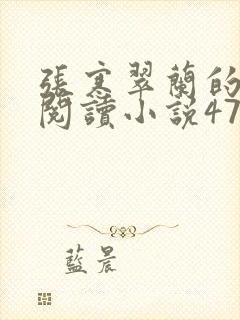 張寒翠蘭的
閱讀小說47
藍晨